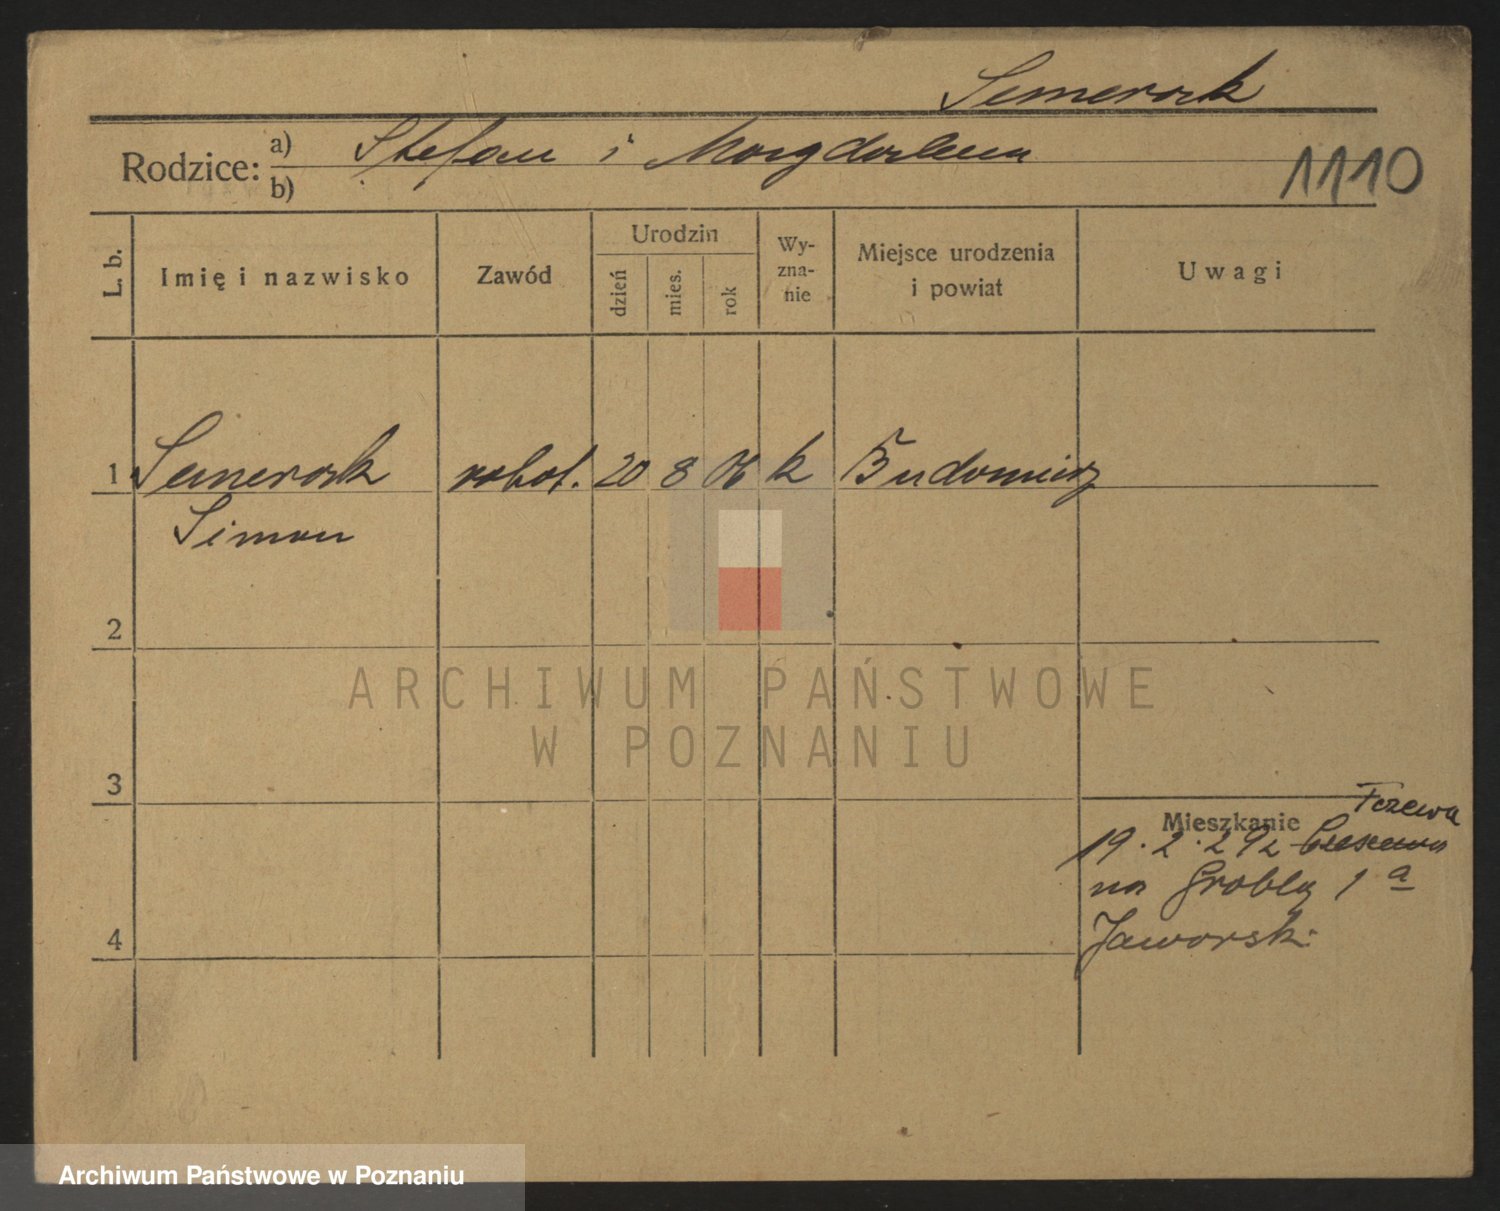 Semerak
Rodzice: a) Stefan i Magdalena
b)
1110
L. b.
Imię i nazwisko
Zawód
Urodzin
dzień
mies.
rok
Wy-
zna-
nie
Miejsce urodzenia
i powiat
Uwagi
1 Semerak robot. 20 8 06 k Budomierz
Simon
2
3
4
Mieszkanie Tczewa
19.2.29 z
na Groblą 1 a
Jaworski
ARCHIWUM PAŃSTWOWE
W POZNANIU
Archiwum Państwowe w Poznaniu